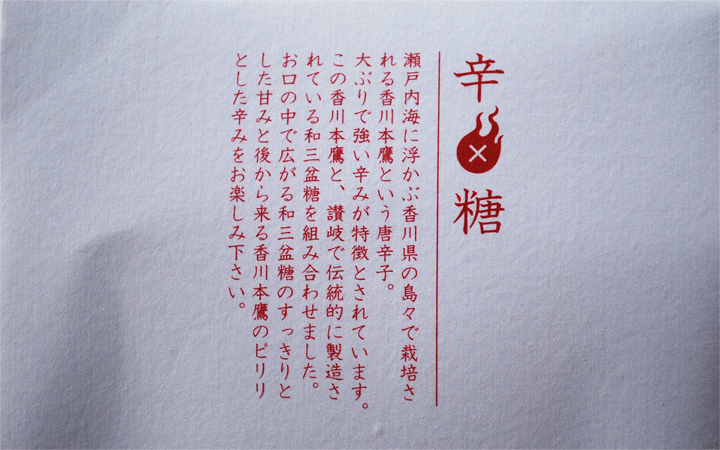 辛×糖
瀬戸内海に浮かぶ香川県の島々で栽培さ
れる香川本鷹という唐辛子。
大ぶりで強い辛みが特徴とされています。
この香川本鷹と、讃岐で伝統的に製造さ
れている和三盆糖を組み合わせました。
お口の中で広がる和三盆糖のすっきりと
した甘みと後から来る香川本鷹のピリリ
とした辛みをお楽しみ下さい。